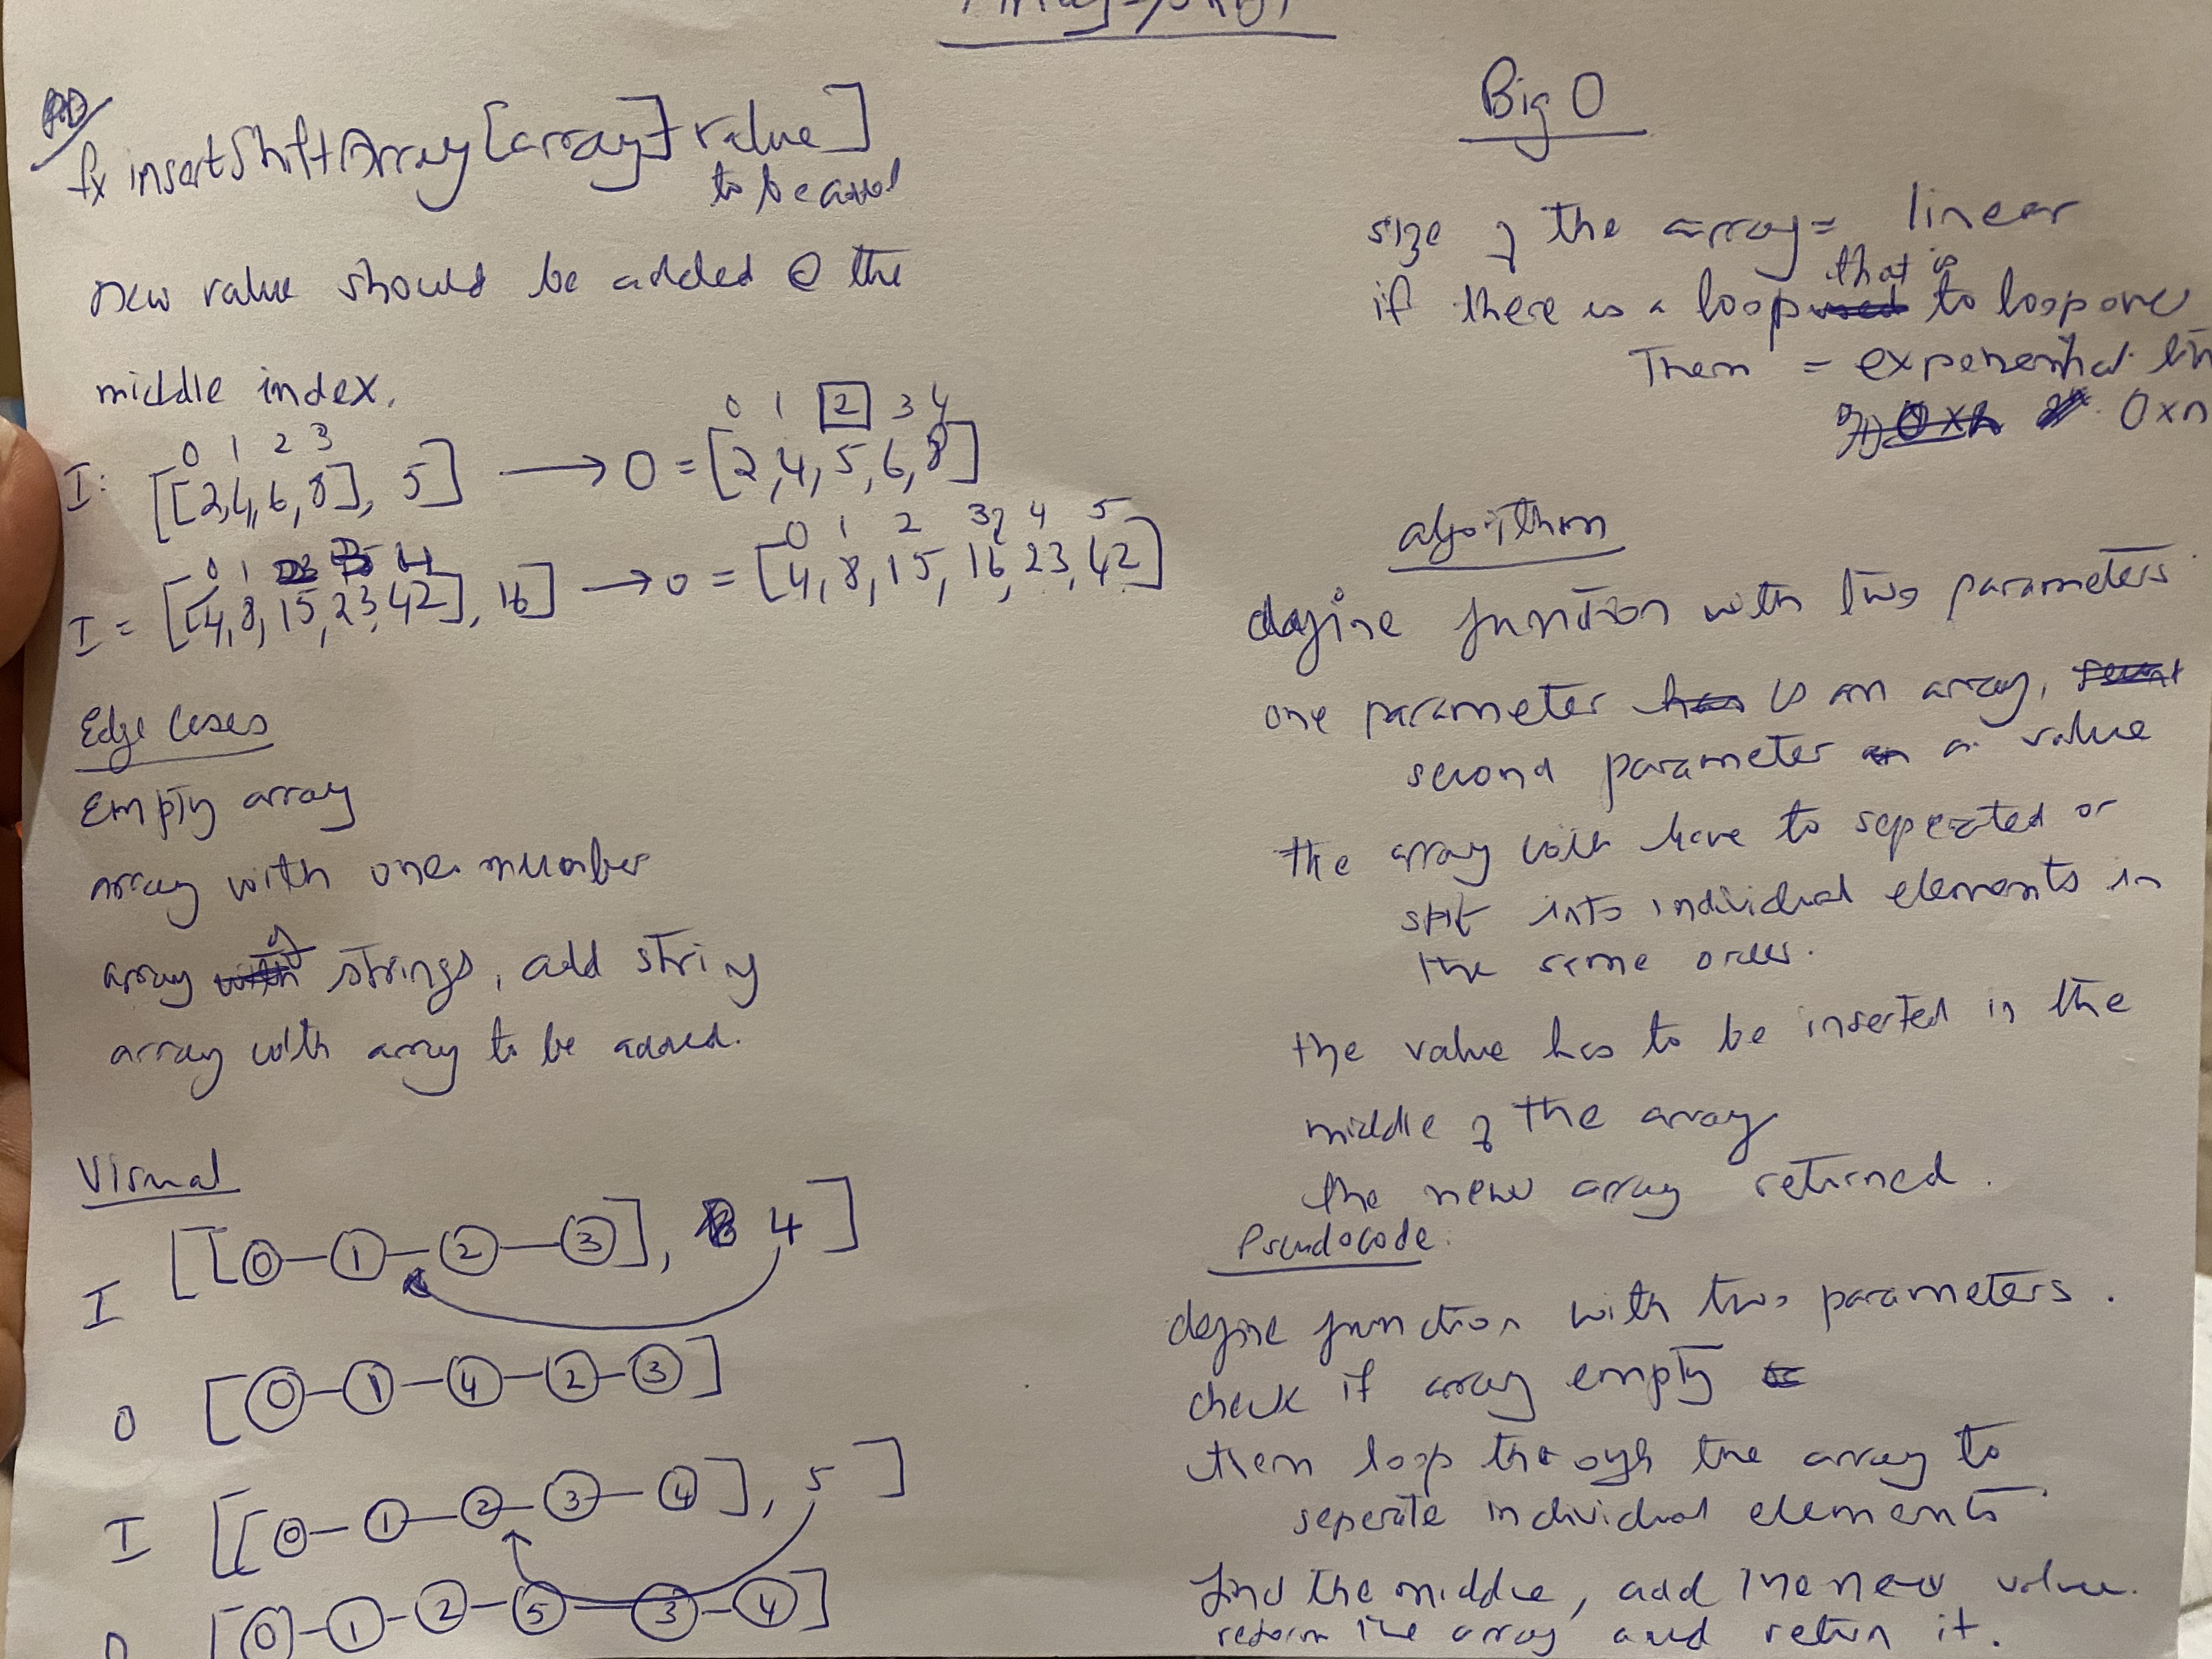 fx insertShiftArray[array] value]
to be
new value should be added @ the
middle index.
0 1 2 3
I: [[2,4,6,8], 5] → O = [2,4,5,6,8]
0 1 2 3 4
I = [[4,8,15,23,42], 16] → O = [4,8,15,16,23,42]
0 1
0 1 2 3 4 5
Edge Cases
Empty array
array with one number
array of strings, add string
array with array to be added.
Visual
I [[0-1-2-3], 4]
O [0-1-4-2-3]
I [[0-1-2-3-4], 5]
O [0-1-2-5-3-4]
Big O
size of the array = linear
if there is a loop that is to loop over
Them = exponential
O x n
algorithm
define function with two parameters
one parameter is an array,
second parameter a value
the array will have to seperated or
split into individual elements in
the same order.
the value has to be inserted in the
middle of the array
the new array returned.
Pseudocode.
define function with two parameters.
check if array empty
then loop through the array to
seperate individual elements
find the middle, add the new value.
reform the array and return it.